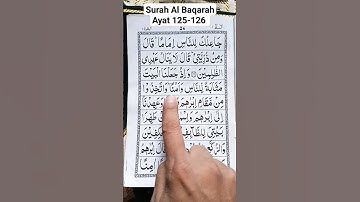 Surah Al Baqarah
Ayat 125-126
جَاعِلُكَ لِلنَّاسِ اِمَامًا ؕ قَالَ
وَمِنْ ذُرِّيَّتِىْ ؕ قَالَ لَا يَنَالُ عَهْدِى
الظّٰلِمِيْنَ وَاِذْ جَعَلْنَا الْبَيْتَ
مَثَابَةً لِّلنَّاسِ وَاَمْنًا ؕ وَاتَّخِذُوْا
مِنْ مَّقَامِ اِبْرٰهٖمَ وَعَهِدْنَآ
اِلٰٓى اِبْرٰهٖمَ طَهِّرَا
بَيْتِىَ لِلطَّآئِفِيْنَ
وَالرُّكَّعِ قَالَ اِبْرٰهٖمُ
اٰمِنًا